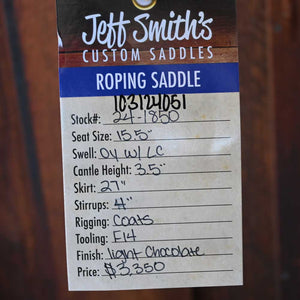 Jeff Smith's
CUSTOM SADDLES
ROPING SADDLE
103124051
Stock#: 24-1850
Seat Size: 15.5"
Swell: Oy w/ LC
Cantle Height: 3.5"
Skirt: 27"
Stirrups: 4"
Rigging: Coats
Tooling: E14
Finish: light Chocolate
Price: $3,350